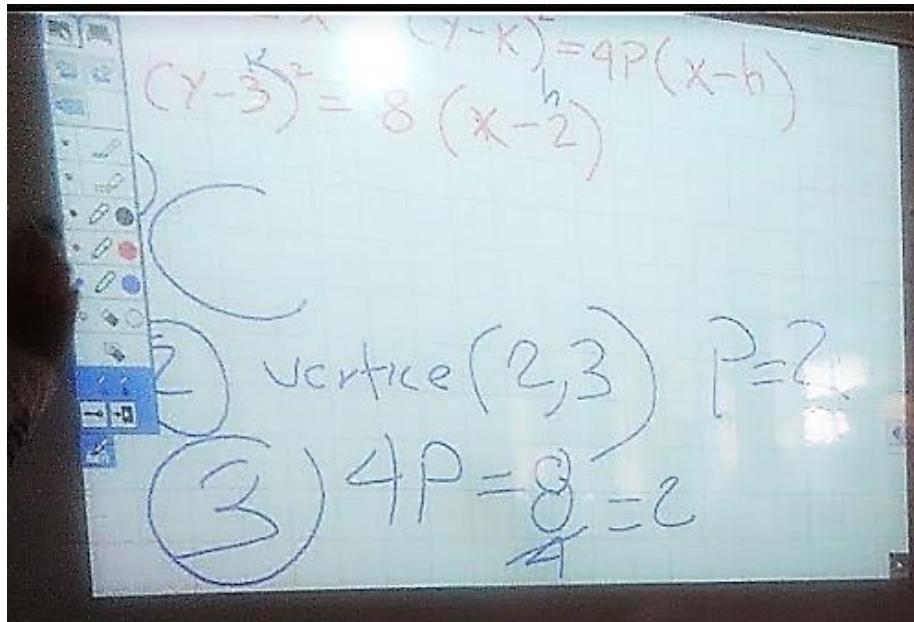 (y-k)²=4P(x-h)
(y-3)²=8(x-2)
k h
2 vertice (2,3) P=2
3 4P=8/4=2